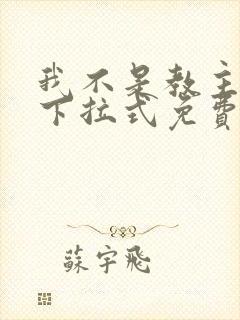 我不是教主
下拉式免費
蘇宇飛